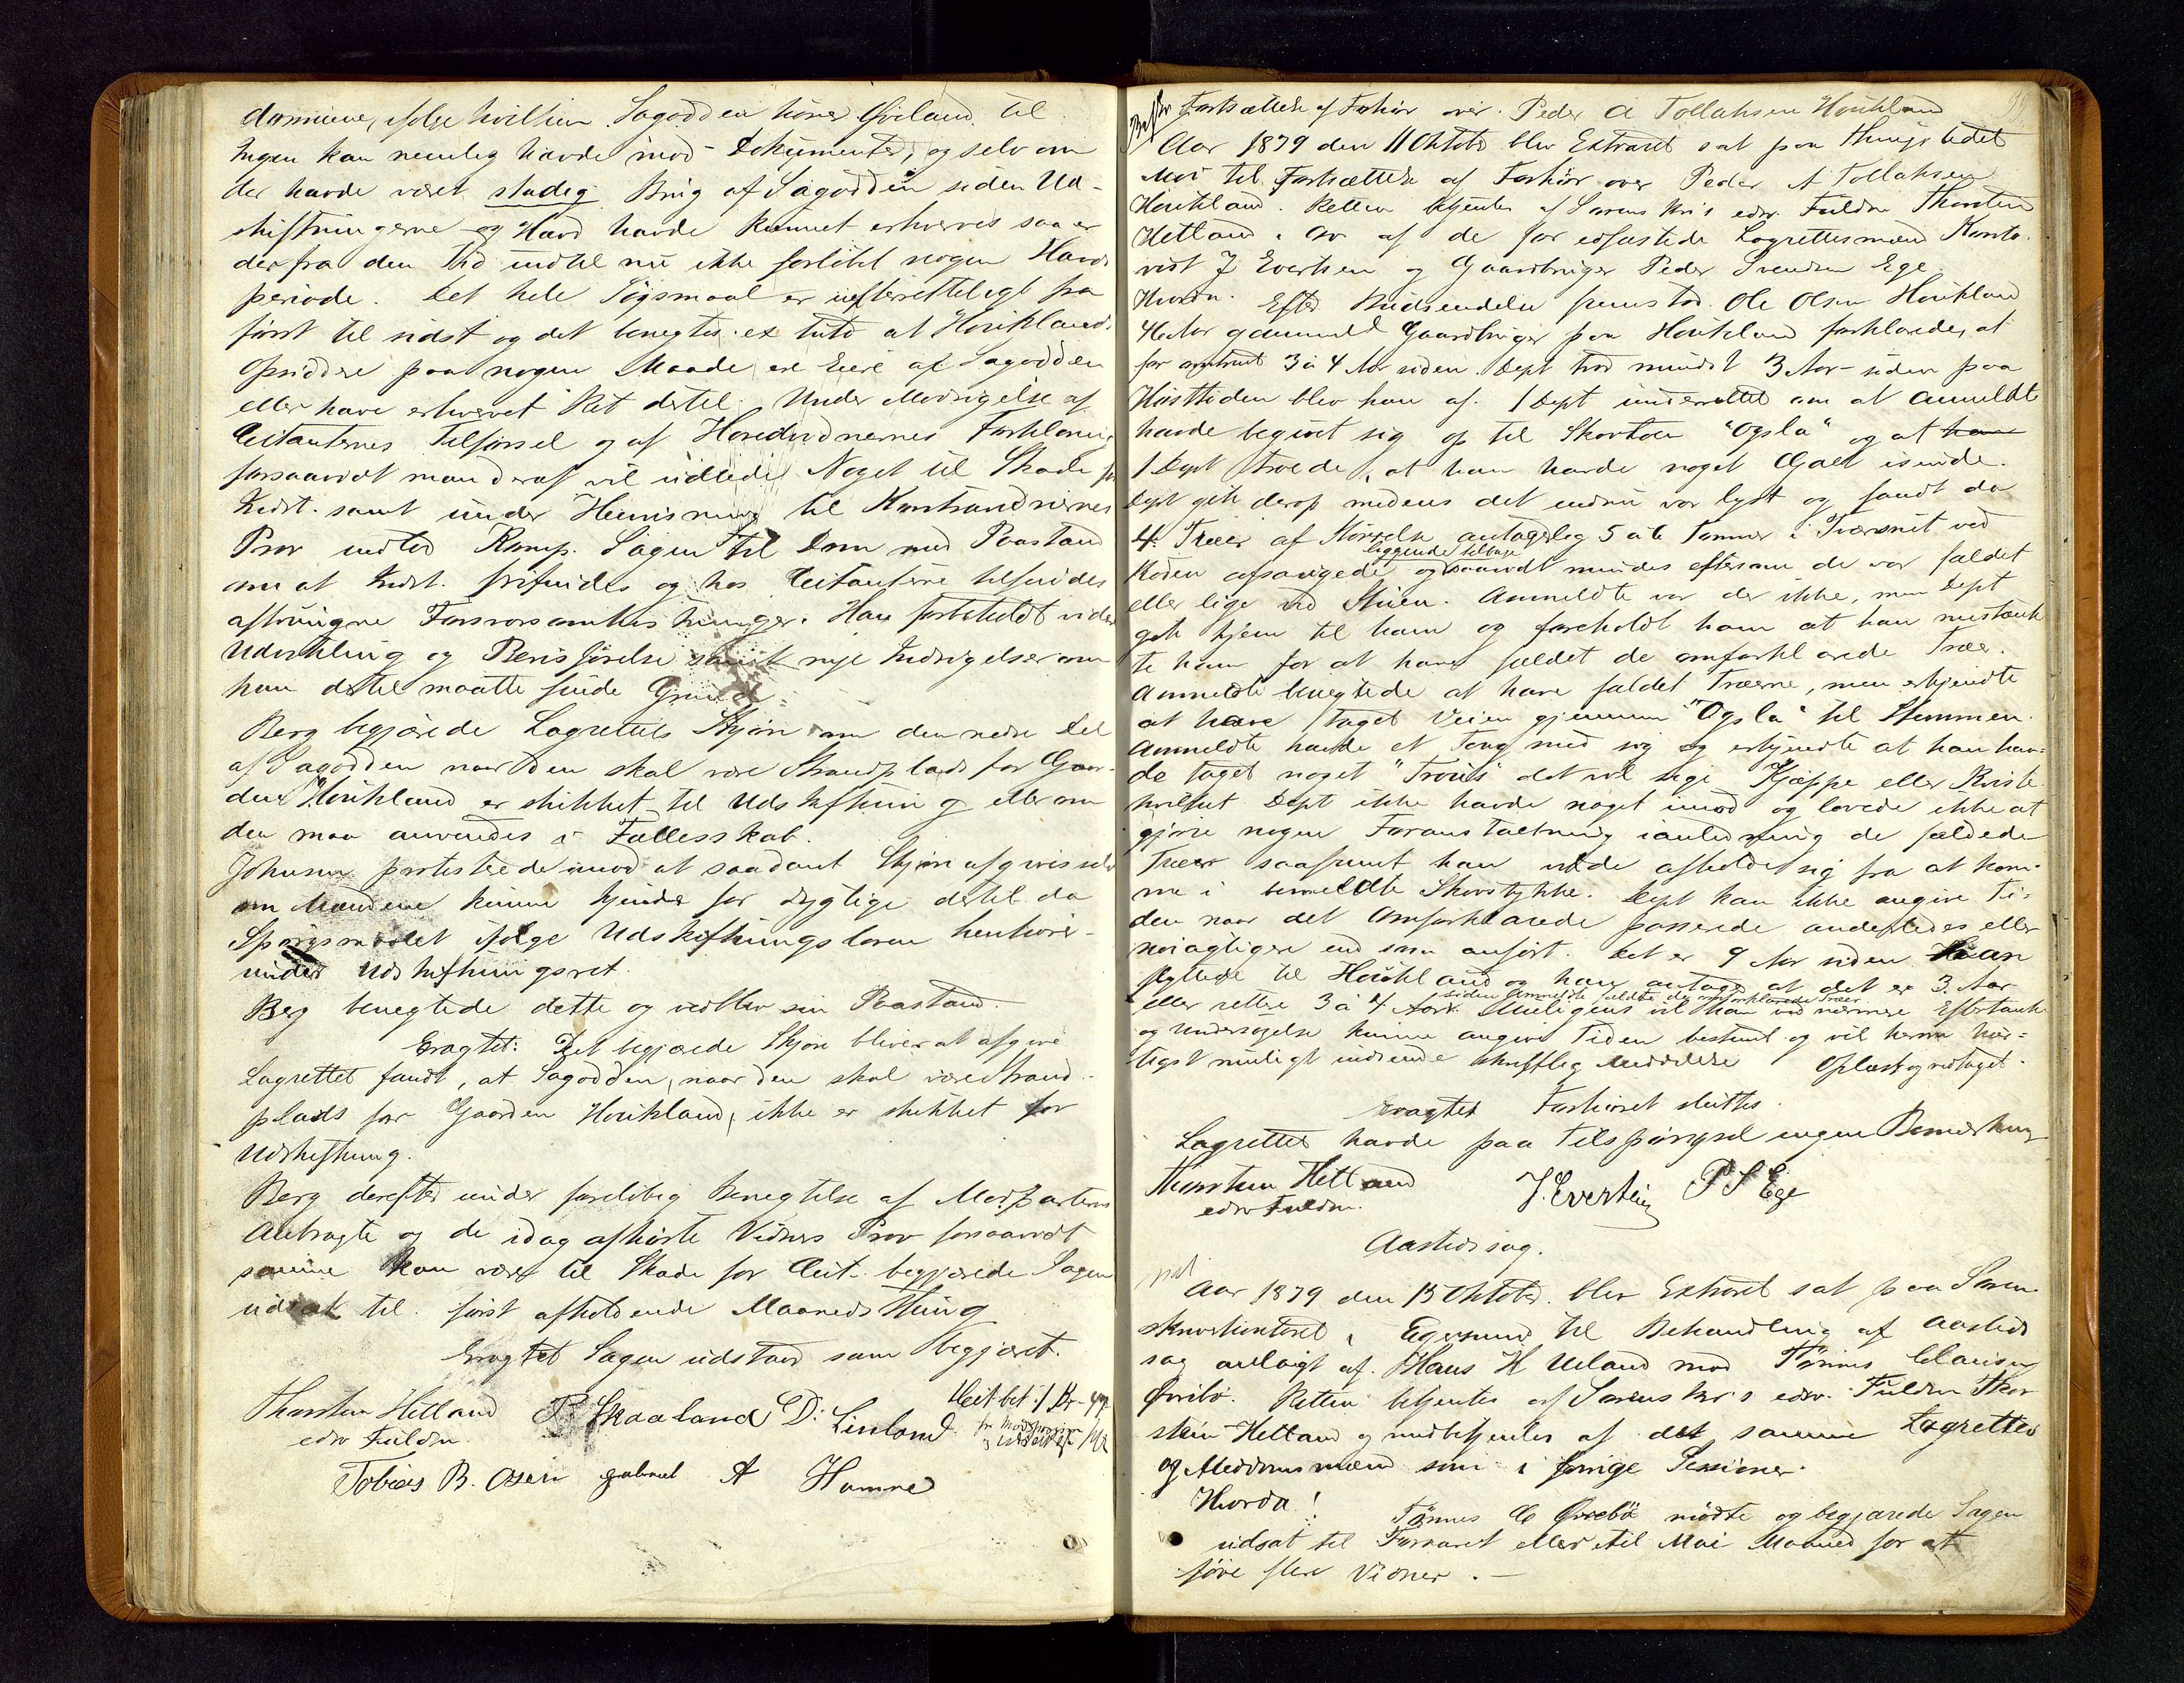 domme, ifølge hvilken Sagodden hører Øviland til
Ingen kan nemlig hævde mod Dokumenter, og selv om
der havde været stadig Brug af Sagodden siden Ud-
skiftningerne og Hævd havde kunnet erhverves saa er
der fra den Tid indtil nu ikke forløbet nogen Hævds
periode. Det hele Søgsmaal er uefterretteligt fra
først til sidst og det benegtes at Houklands
Opsiddere paa nogen Maade er Eiere af Sagodden
eller have erhvervet Ret dertil. Under Modsigelse af
Citanternes Tilførsel og af Hovedvidnernes Forklaring
forsaavidt man deraf vil udlede Noget til Skade for
Indst. samt under Henvisning til Kontravidnernes
Prov indlod Komp. Sagen til Dom med Paastand
om at Indst. frifindes og hos Citanterne tilfindes
aftvungne Forsvarsomkostninger. Han forbeholdt videre
Udvikling og Bevisførelse samt nye Indsigelser om
han dertil maatte finde Grund.
Berg begjærede Lagrettets Skjøn om den nedre Del
af Sagodden naar den skal være Strandplads for Gaar-
den Houkland er skikket til Udskiftning eller om
den maa anvendes i Fællesskab.
Johnsen protesterede imod at saadant Skjøn afgives selv
om Mændene kunne kjendes for dygtige dertil da
Spørgsmaalet ifølge Udskiftningsloven henhører
under Udskiftningsret.
Berg benegtede dette og vedblev sin Paastand.
Eragtet: Det begjærede Skjøn bliver at afgive
Lagrettet fandt, at Sagodden, naar den skal være Strand-
plads for Gaarden Houkland, ikke er skikket for
Udskiftning.
Berg derefter under foreløbig Benegtelse af Modpartens
Anbragte og de idag afhørte Vidners Prov forsaavidt
samme kan være til Skade for Citt. begjærede Sagen
udsat til først afholdende Maaneds Thing
Eragtet Sagen udstaar som begjæret.
Thorsten Hetland P. Skaaland D. Linland Citt bet. 1 Kr.
edsv Fuldm.
Tobias B. Osen Gabriel A Hamre
Fortsættelse af Forhør over Peder A Tollaksen Houkland
Aar 1879 den 11 Oktober blev Extraret sat paa Thingstedet
Moi til Fortsættelse af Forhør over Peder A Tollaksen
Houkland. Retten betjentes af Sorenskr's edsv. Fuldm Thorsten
Hetland og af de før edfæstede Lagrettesmænd Konto-
rist J Evertsen og Gaardbruger Peder Svendsen Ege
Hvorda. Efter Budsendelse fremstod Ole Olsen Houkland
46 Aar gammel Gaardbruger paa Houkland forklarede, at
for omtrent 3 à 4 Aar siden Dept tror mindst 3 Aar siden paa
Høsttiden blev han af 1 Dept underrettet om at Anmeldte
havde begivet sig op til Skovtoen "Ogsla" og at
1 Dept troede, at han havde noget Galt isinde.
Dept gik derop medens det endnu var lyst og fandt da
4 Træer af Størrelse antagelig 5 a 6 Tommer i Tværsnit ved
liggende tilbage
Roden afsavgede og saavidt mindes eftersom de var fældet
eller lige ved Stien. Anmeldte var der ikke, men Dept
gik hjem til ham og foreholdt ham at han mistænk
te ham for at have fældet de omforklarede Træer.
Anmeldte benegtede at have fældet Træerne, men erkjendte
at have taget Veien gjennem "Ogsla" til Stemmen.
Anmeldte havde et Toug med sig og erkjendte at han hav-
de taget noget "Trous" det vil sige Kjæppe eller Kviste
hvilket Dept ikke havde noget imod og lovede ikke at
gjøre nogen Foranstaltning i anledning de fældede
Træer saafremt han vilde afholde sig fra at kom-
me i bemeldte Skovstykke. Dept kan ikke angive Ti-
den naar det Omforklarede passerede anderledes eller
nøiagtigere end som anført. Det er 9 Aar siden han
flyttede til Houkland og han antager at det er 3 Aar
siden Anmeldte fældte de omforklarede Træer
eller rettere 3 à 4 Aar. Muligens vil han ved nærmere Eftertanke
og Undersøgelse kunne angive Tiden bestemt og vil herom hur-
tigst muligt indsende skriftlig Meddelelse Oplæst og vedtaget.
Eragtet Forhøret sluttes.
Lagrettet havde paa Tilspørgsel ingen Bemerkning
Thorsten Hetland J. Evertsen P S Ege
edsv Fuldm.
Aastedssag.
Aar 1879 den 13 Oktober blev Extraret sat paa Soren-
skriverkontoret i Egersund til Behandling af Aasteds
sag anlagt af Hans H Ueland mod Tønnes Clausen
Ørebø. Retten betjentes af Sorenskr's edsv. Fuldm Thor
stein Hetland og medbetjentes af det samme Lagrettes
og Meddomsmænd som i forrige Sessioner.
Hvorda!
Tønnes C Ørebø mødte og begjærede Sagen
udsat til Foraaret eller til Mai Maaned for at
føre flere Vidner. —